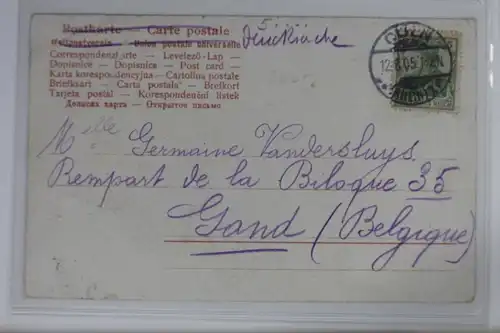 Postkarte — Carte postale
Weltpostverein — Union postale universelle
Drucksache
Correspondenzkarte — Levelező-Lap —
Dopisnice — Dopisnica — Post card —
Karta korespondencyjna — Cartolina postale
Briefkaart — Carta postala — Brefkort
Tarjeta postal — Korespondenční lístek
Дописна карта — Открытое письмо
12.8.05
Mlle Germaine Vandersluys
Rempart de la Biloque 35
Gand (Belgique)